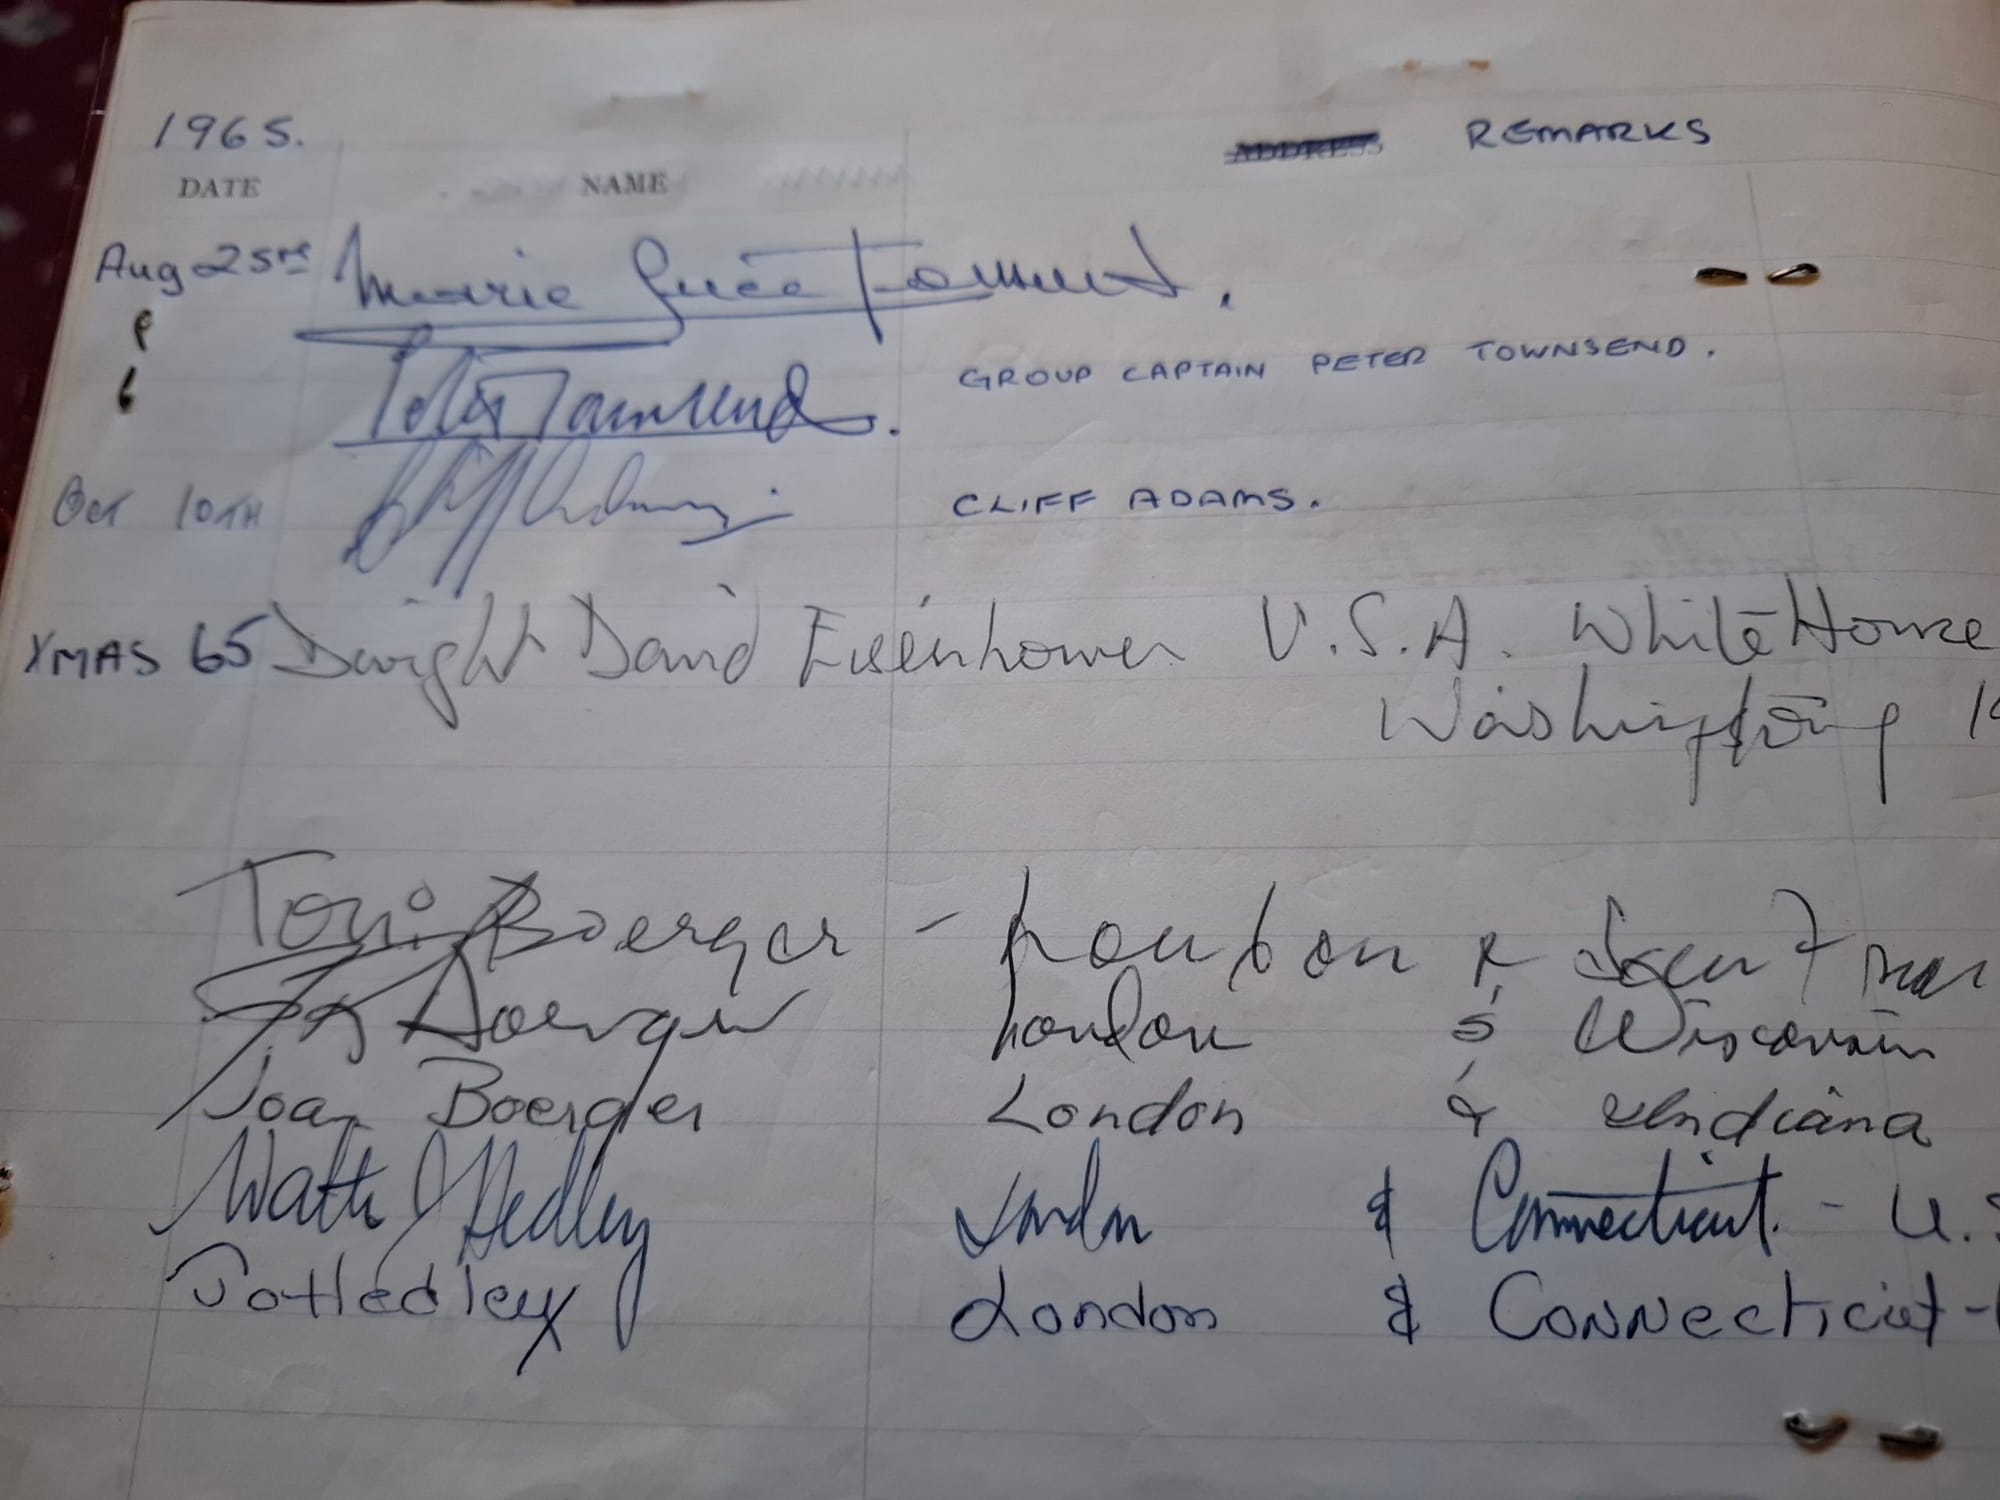 1965.
DATE NAME ADDRESS REMARKS
Aug 25
Marie Luce Townsend.
Peter Townsend. GROUP CAPTAIN PETER TOWNSEND.
Oct 10TH Cliff Adams CLIFF ADAMS.
XMAS 65 Dwight David Eisenhower U.S.A. White House
Washington
Toni Boerger - London &
Boerger London & Wisconsin
Joan Boerger London & Indiana
Walter J Hedley London & Connecticut. - U.S
Jo Hedley London & Connecticut -